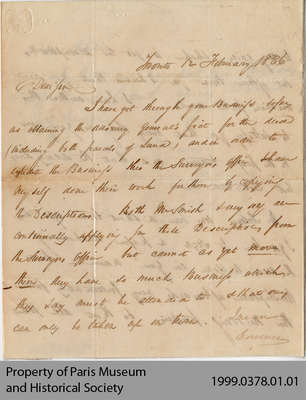 Toronto 12 February 1836
Dear Sir
I have got through your Business, so far
as obtaining the Attorney General's fiat for the deed
(including both parcels of Land) and in order to
expedite the Business thro the Surveyors office I have
myself done their work for them by copying
the Descriptions. Both Mr Small say are
continually applying for these Descriptions from
the Surveyors Office but cannot as yet move
them they have so much Business which
they say must be attended to & that ours
can only be taken up in turn.
Property of Paris Museum
and Historical Society
1999.0378.01.01